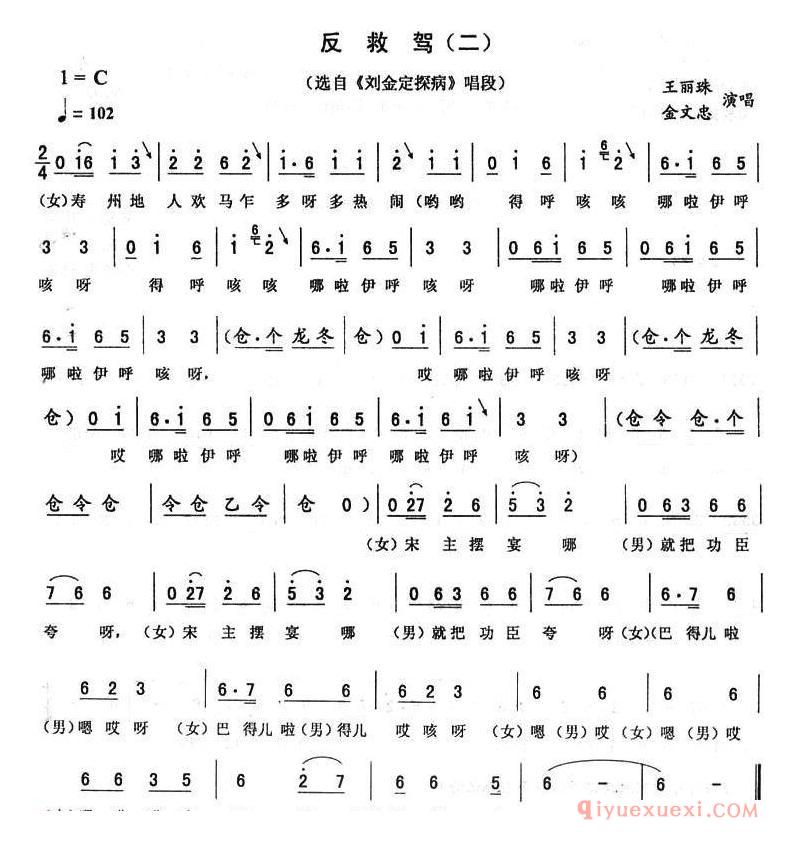 反 救 驾（二）
1 = C
（选自《刘金定探病》唱段）
王丽珠
♩ = 102
金文忠 演唱
2/4 0 i6 | i 3 | 2 2 6 2 | i·6 i i | 2 i i | 0 i 6 | i 2 | 6·i 6 5 |
（女）寿 州地 人欢马乍 多呀多热 闹（哟哟 得呼 咳咳 哪啦伊呼
3 3 | 0 i 6 | i 2 | 6·i 6 5 | 3 3 | 0 6i 6 5 | 0 6i 6 5 |
咳 呀 得 呼 咳 咳 哪啦伊呼 咳呀 哪啦伊呼 哪啦伊呼
6·i 6 5 | 3 3 |（仓·个 龙冬 | 仓）0 i | 6·i 6 5 | 3 3 |（仓·个 龙冬
哪啦伊呼 咳呀， 哎 哪啦伊呼 咳呀
仓）0 i | 6·i 6 5 | 0 6i 6 5 | 6·i 6 i | 3 3 |（仓令 仓·个
哎 哪啦伊呼 哪啦伊呼 哪啦伊呼 咳呀）
仓令仓 | 令仓 乙令 | 仓 0）| 0 27 2 6 | 5 3 2 | 0 63 6 6 |
（女）宋 主摆 宴 哪 （男）就把功臣
7 6 6 | 0 27 2 6 | 5 3 2 | 0 63 6 6 | 7 6 6 | 6·7 6 |
夸 呀，（女）宋 主摆 宴 哪 （男）就把功臣 夸 呀（女）（巴 得儿啦
6 2 3 | 6·7 6 6 | 6 2 3 | 6 6 | 6 6 |
（男）嗯哎呀 （女）巴 得儿啦（男）得儿 哎咳呀 （女）嗯（男）哎（女）嗯（男）哎
6 6 3 5 | 6 6 | 2 7 | 6 6 5 | 6 － | 6 － ‖
qiyuexuexi.COM